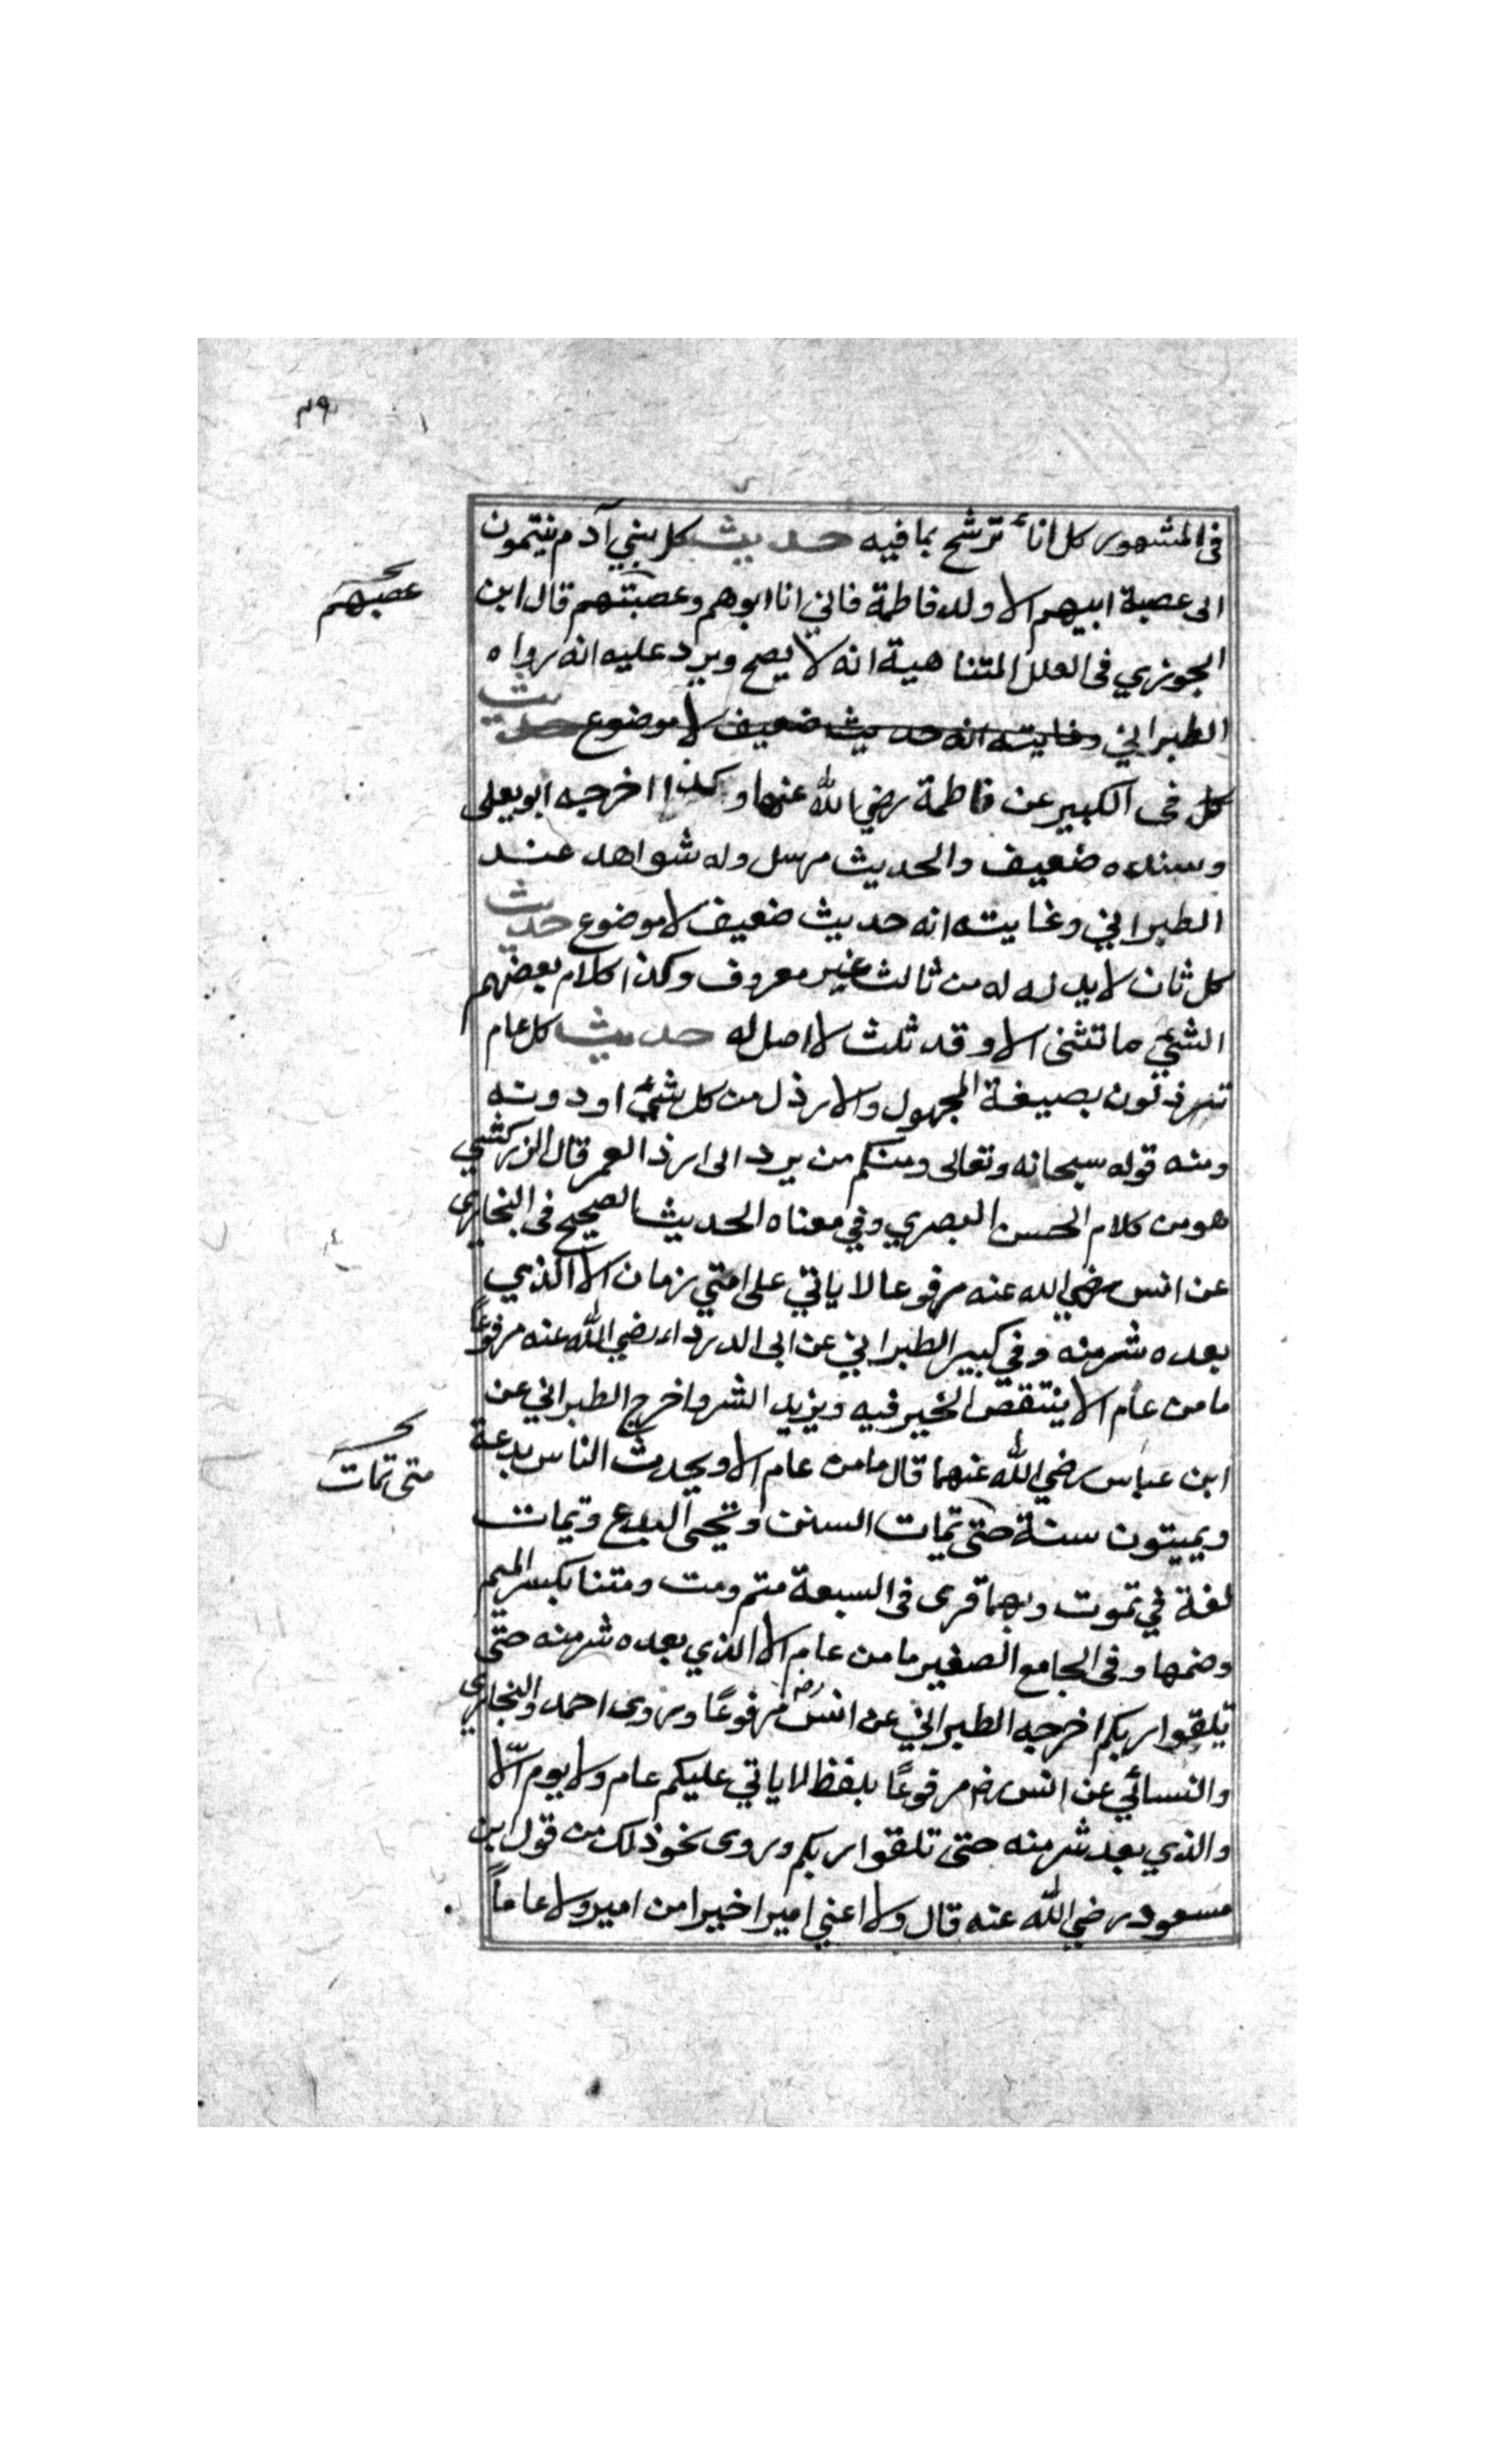 ٣٩
فى المشهور كل اناء ترشح بما فيه حديث كل بني آدم ينتمون
الى عصبة ابيهم الا ولد فاطمة فاني انا ابوهم وعصبتهم قال ابن
عصبهم
الجوزي فى العلل المتناهية انه لا يصح ويرد عليه انه رواه
الطبراني وغايته انه حديث ضعيف لا موضوع حديث
كل فى الكبير عن فاطمة رضي الله عنها وكذا اخرجه ابو يعلى
وسنده ضعيف والحديث مرسل وله شواهد عند
الطبراني وغايته انه حديث ضعيف لا موضوع حديث
كل ثان لا بد له له من ثالث غير معروف وكذا كلام بعضهم
الشيء ما تثنى الا وقد ثلث لا اصل له حديث كل عام
ترذلون بصيغة المجهول والارذل من كل شيء اودونه
ومنه قوله سبحانه وتعالى ومنكم من يرد الى ارذا العمر قال الزركشي
هو من كلام الحسن البصري وفي معناه الحديث الصحيح فى البخاري
عن انس رضي الله عنه مرفوعا لا ياتي على امتي زمان الا الذي
بعده شر منه وفي كبير الطبراني عن ابى الدرداء رضي الله عنه مرفوعاً
ما من عام الا ينتقص الخير فيه ويزيد الشر واخرج الطبراني عن
ابن عباس رضي الله عنهما قال ما من عام الا ويحدث الناس بدعة
متى تمات
ويميتون سنة حتى تمات السنن وتحيى البدع وتمات
لغة في تموت وبهما قرى فى السبعة متم ومت ومتنا بكسر الميم
وضمها وفى الجامع الصغير ما من عام الا الذي بعده شر منه حتى
تلقوا ربكم اخرجه الطبراني عن انس رضه مرفوعًا وروى احمد والبخاري
والنسائي عن انس رضه مرفوعًا بلفظ لا ياتي عليكم عام ولا يوم الّا
والذي بعد شر منه حتى تلقوا ربكم وروى نحو ذلك من قول ابن
مسعود رضي الله عنه قال ولا اعني اميرا خيرا من امير ولا عاماً